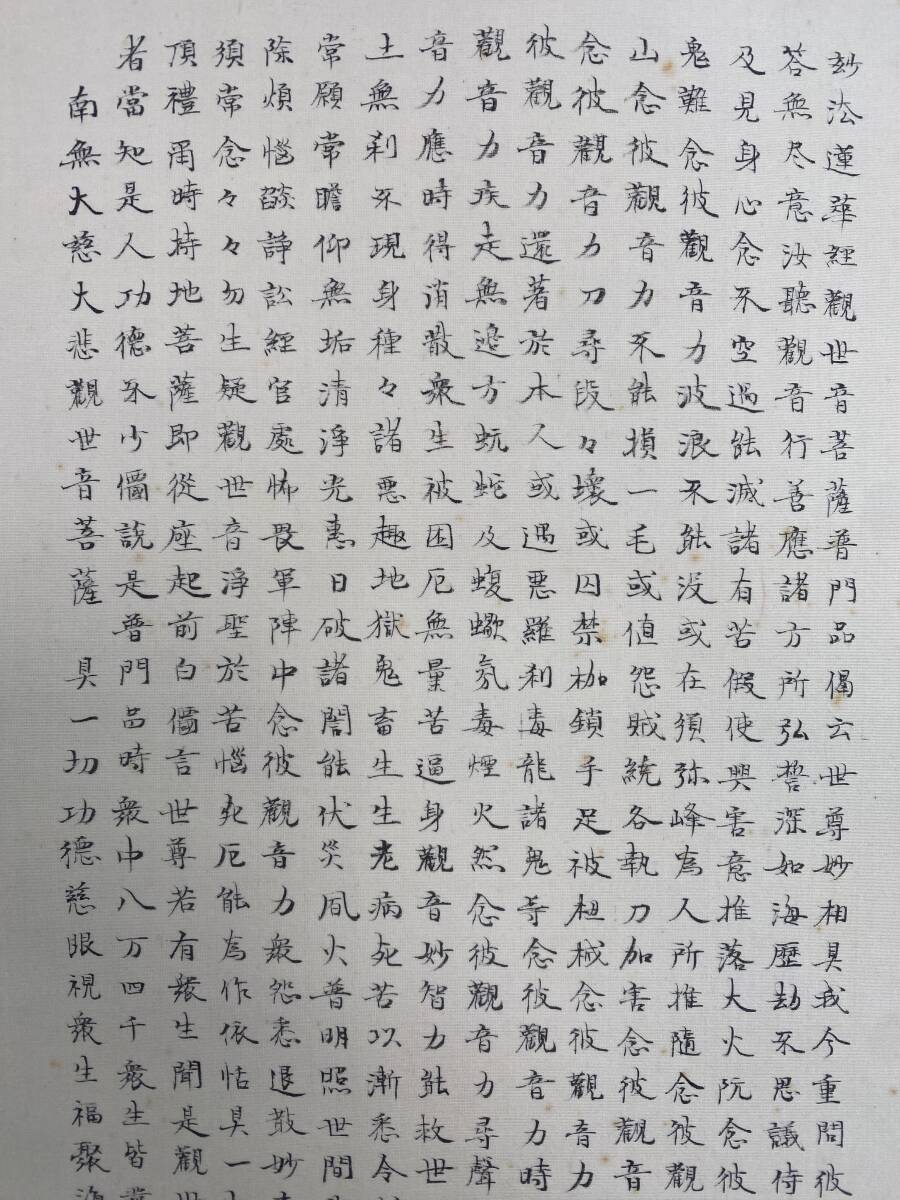 玅法蓮華經觀世音菩薩普門品偈云世尊妙相具我今重問彼
答無尽意汝聽觀音行善應諸方所弘誓深如海歷劫不思議侍
及見身心念不空過能滅諸有苦假使興害意推落大火阬念彼
鬼難念彼觀音力波浪不能没或在須弥峰為人所推隨念彼觀
山念彼觀音力不能損一毛或值怨賊繞各執刀加害念彼觀音
念彼觀音力刀尋段々壞或囚禁枷鎖手足被杻械念彼觀音力
彼觀音力還著於本人或遇悪羅刹毒龍諸鬼等念彼觀音力時
觀音力疾走無邊方蚖蛇及蝮蠍氣毒煙火然念彼觀音力尋聲
音力應時得消散衆生被困厄無量苦逼身觀音妙智力能救世
土無刹不現身種々諸悪趣地獄鬼畜生生老病死苦以漸悉令
常願常瞻仰無垢清淨光惠日破諸闇能伏災風火普明照世間
除煩惱燄諍訟經官處怖畏軍陣中念彼觀音力衆怨悉退散妙
須常念々々勿生疑觀世音淨聖於苦惱死厄能為作依怙具一
頂禮爾時持地菩薩即從座起前白佛言世尊若有衆生聞是觀世
者當知是人功德不少佛說是普門品時衆中八万四千衆生皆
南無大慈大悲觀世音菩薩 具一切功德慈眼視衆生福聚海